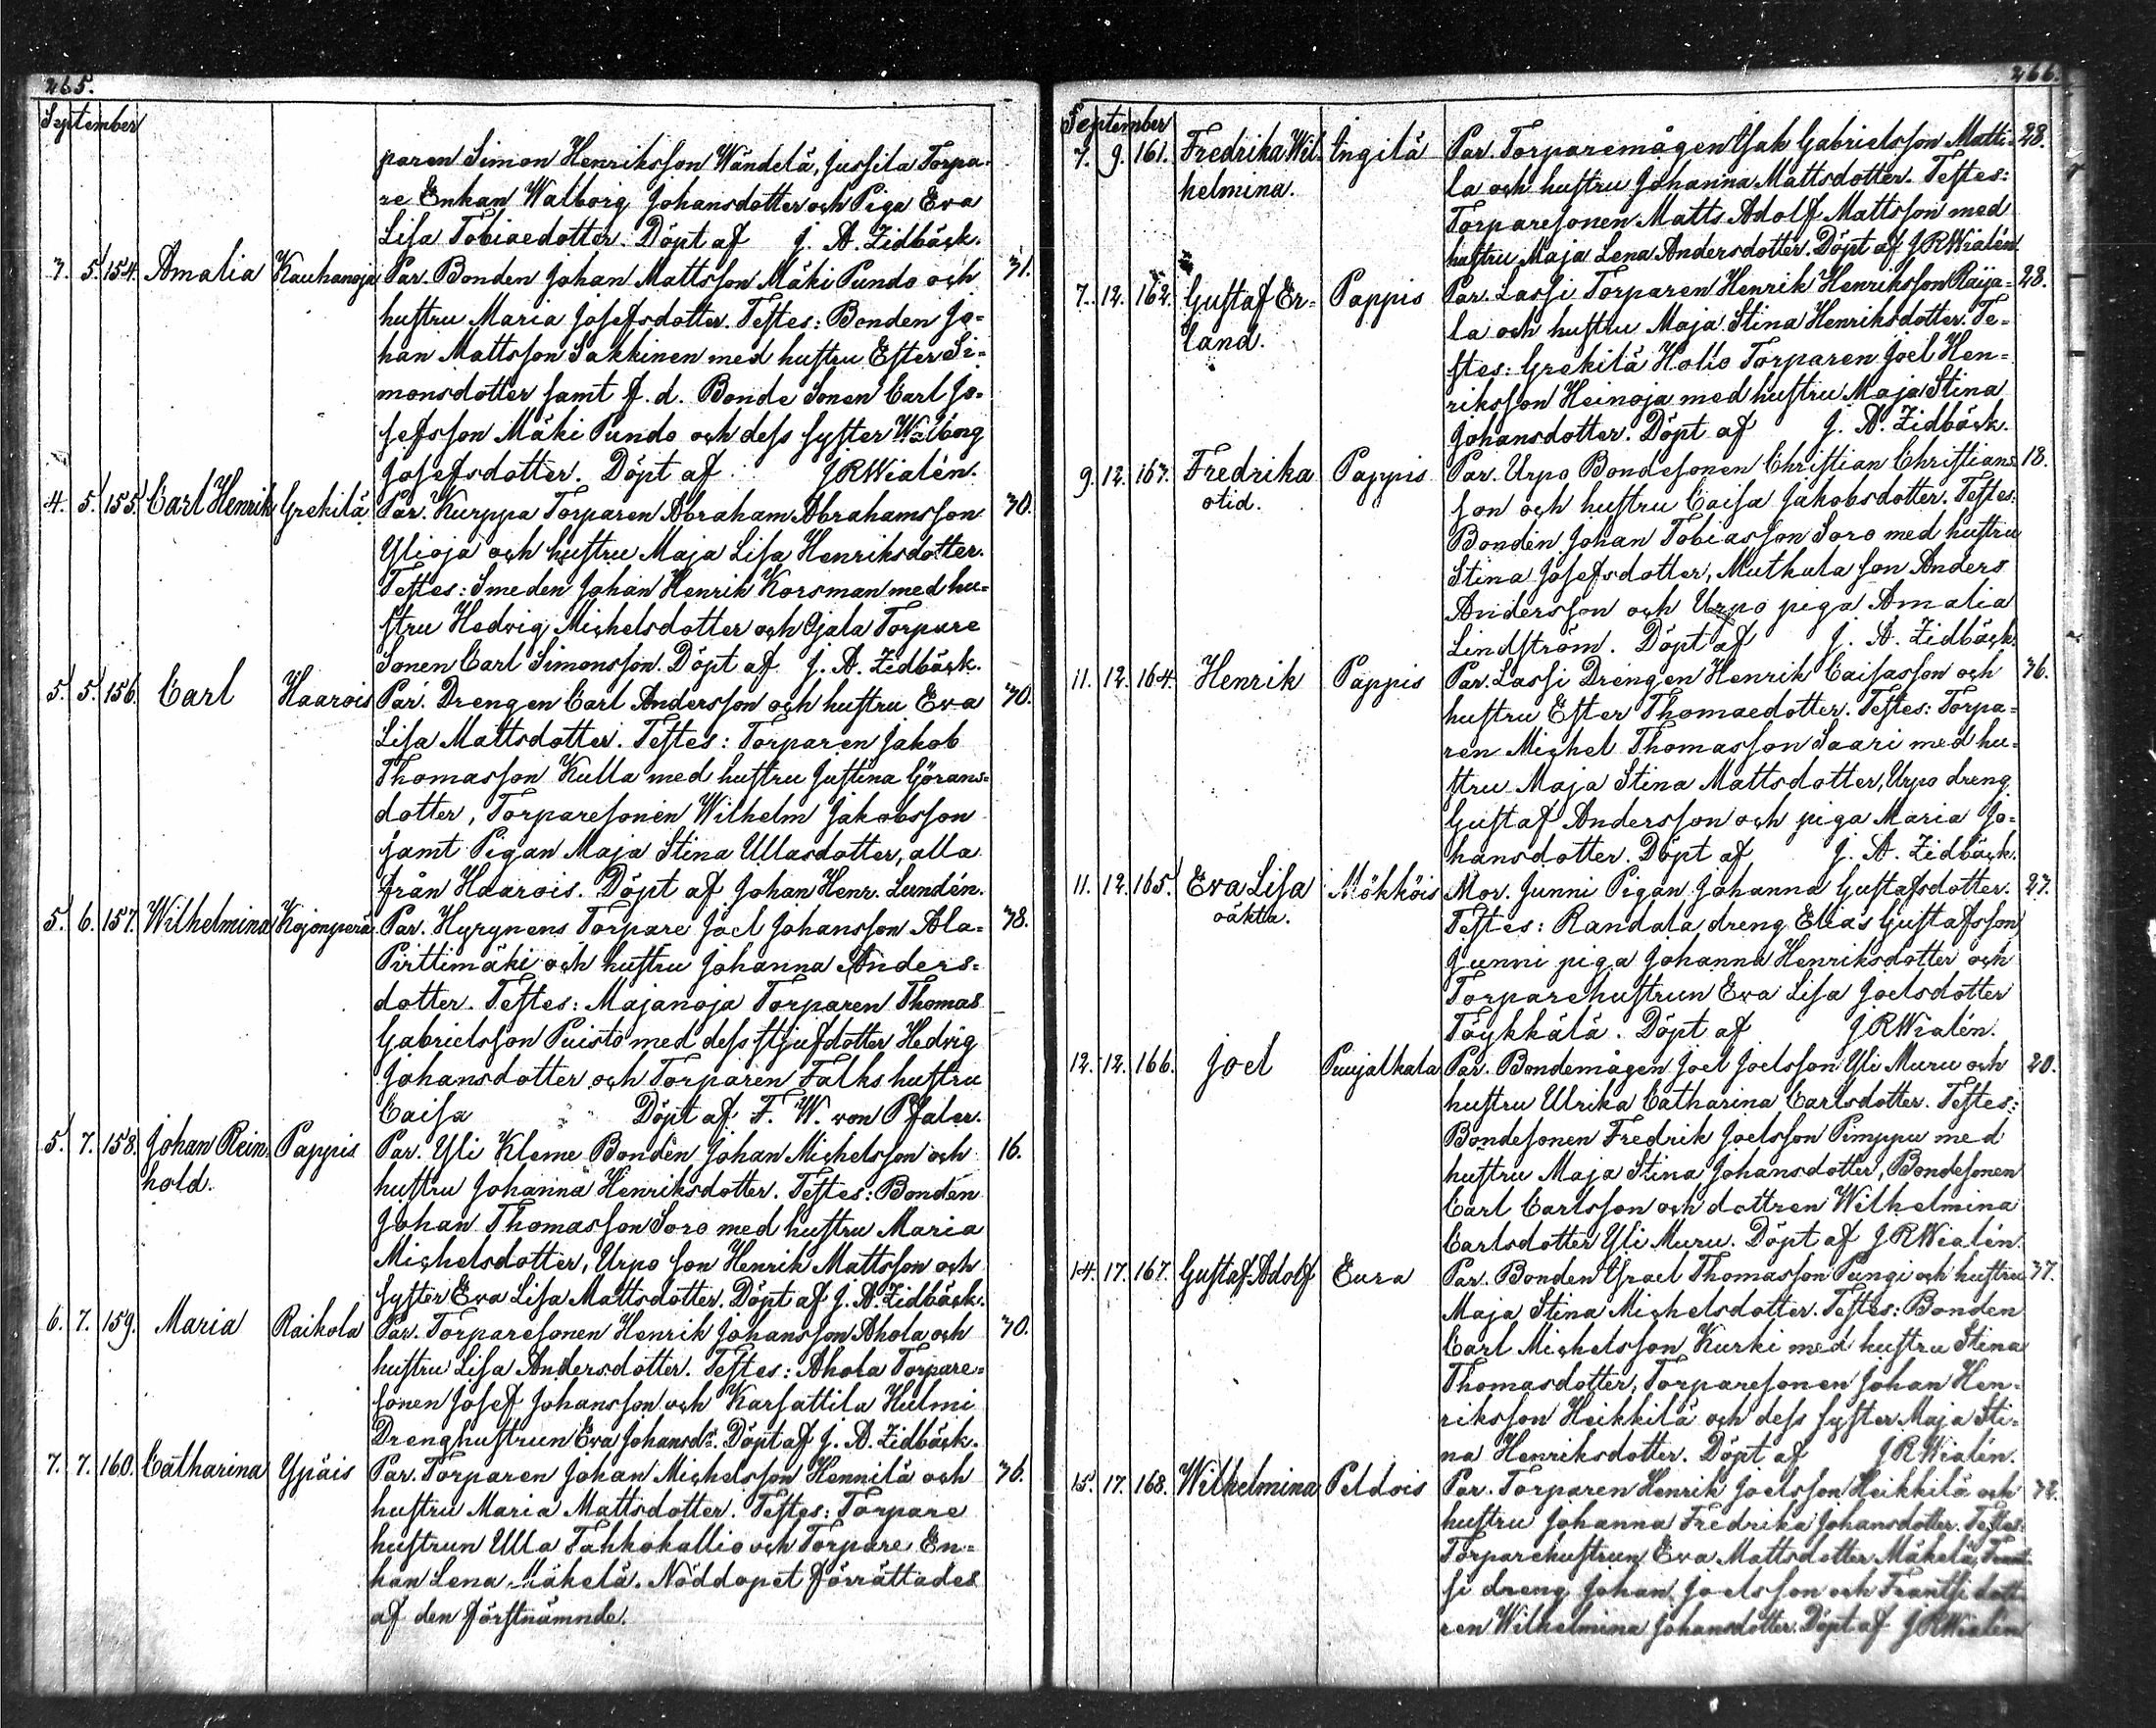 265.
September
paren Simon Henriksson Wändelä, Jussila Torpa-
re Enkan Walborg Johansdotter och Piga Eva
Lisa Tobiaedotter. Döpt af J. A. Zidbäck.
3. 5. 154. Amalia Kauhanoja Par. Bonden Johan Mattsson Mäki Pundo och 31.
hustru Maria Josefsdotter. Testes: Bonden Jo-
han Mattsson Sakkinen med hustru Ester Si-
monsdotter samt f. d. Bonde Sonen Carl Jo-
sefsson Mäki Pundo och dess syster Walborg
Josefsdotter. Döpt af J R Wialén.
4. 5. 155. Carl Henrik Grekilä Par. Kurppa Torparen Abraham Abrahamsson 30.
Ylioja och hustru Maja Lisa Henriksdotter.
Testes: Smeden Johan Henrik Korsman med hu-
stru Hedvig Michelsdotter och Ojala Torpare
Sonen Carl Simonsson. Döpt af J. A. Zidbäck.
5. 5. 156. Carl Haarois Par. Drengen Carl Andersson och hustru Eva 30.
Lisa Mattsdotter. Testes: Torparen Jakob
Thomasson Kulla med hustru Justina Görans-
dotter, Torparesonen Wilhelm Jakobsson
samt Pigan Maja Stina Ullasdotter, alla
från Haarois. Döpt af Johan Henr. Lundén.
5. 6. 157. Wilhelmina Kojonperä Par. Hyrynens Torpare Joel Johansson Ala- 38.
Pirttimäki och hustru Johanna Anders-
dotter. Testes: Majanoja Torparen Thomas
Gabrielsson Puisto med dess stjufdotter Hedvig
Johansdotter och Torparen Falks hustru
Caisa Döpt af F. W. von Pfaler.
5. 7. 158. Johan Rein- Pappis Par. Yli Kleme Bonden Johan Michelsson och 16.
hold. hustru Johanna Henriksdotter. Testes: Bonden
Johan Thomasson Soro med hustru Maria
Michelsdotter, Urpo son Henrik Mattsson och
syster Eva Lisa Mattsdotter. Döpt af J. A. Zidbäck.
6. 7. 159. Maria Raikola Par. Torparesonen Henrik Johansson Ahola och 30.
hustru Lisa Andersdotter. Testes: Ahola Torpare-
sonen Josef Johansson och Karsattila Hulmi
Drenghustrun Eva Johansdr. Döpt af J. A. Zidbäck.
7. 7. 160. Catharina Ypäis Par. Torparen Johan Michelsson Hennilä och 36.
hustru Maria Mattsdotter. Testes: Torpare
hustrun Ulla Tahkokallio och Torpare En-
kan Lena Mäkelä. Nöddopet förrättades
af den förstnämnde.
266.
September
7. 9. 161. Fredrika Wil- Ingilä Par. Torparemågen Isak Gabrielsson Matti- 28.
helmina. la och hustru Johanna Mattsdotter. Testes:
Torparesonen Matts Adolf Mattsson med
hustru Maja Lena Andersdotter. Döpt af J R Wialén.
7. 12. 162. Gustaf Er- Pappis Par. Lassi Torparen Henrik Henriksson Raija- 28.
land. la och hustru Maja Stina Henriksdotter. Te-
stes: Grekilä Hollo Torparen Joel Hen-
riksson Heinoja med hustru Maja Stina
Johansdotter. Döpt af J. A. Zidbäck.
9. 12. 163. Fredrika Pappis Par. Urpo Bondesonen Christian Christians- 18.
otid. son och hustru Caisa Jakobsdotter. Testes:
Bonden Johan Tobiasson Soro med hustru
Stina Josefsdotter, Muthula son Anders
Andersson och Urpo piga Amalia
Lindström. Döpt af J. A. Zidbäck.
11. 12. 164. Henrik Pappis Par. Lassi Drengen Henrik Caisasson och 36.
hustru Ester Thomaedotter. Testes: Torpa-
ren Michel Thomasson Saari med hu-
stru Maja Stina Mattsdotter, Urpo dreng
Gustaf Andersson och piga Maria Jo-
hansdotter. Döpt af J. A. Zidbäck.
11. 12. 165. Eva Lisa Mökköis Mor. Junni Pigan Johanna Gustafsdotter. 27.
oäkta. Testes: Randala dreng Elias Gustafsson
Junni piga Johanna Henriksdotter och
Torparehustrun Eva Lisa Joelsdotter
Töykkälä. Döpt af J R Wialén.
12. 12. 166. Joel Puujalkala Par. Bondemågen Joel Joelsson Yli Muru och 20.
hustru Ulrika Catharina Carlsdotter. Testes:
Bondesonen Fredrik Joelsson Pimppu med
hustru Maja Stina Johansdotter, Bondesonen
Carl Carlsson och dottren Wilhelmina
Carlsdotter Yli Muru. Döpt af J R Wialén.
14. 17. 167. Gustaf Adolf Eura Par. Bonden Israel Thomasson Pungi och hustru 37.
Maja Stina Michelsdotter. Testes: Bonden
Carl Michelsson Kurki med hustru Stina
Thomasdotter, Torparesonen Johan Hen-
riksson Heikkilä och dess syster Maja Sti-
na Henriksdotter. Döpt af J R Wialén.
15. 17. 168. Wilhelmina Peldois Par. Torparen Henrik Joelsson Heikkilä och
hustru Johanna Fredrika Johansdotter. Testes:
Torparehustrun Eva Mattsdotter Mäkelä, Frant-
si dreng Johan Joelsson och Frantsi dott-
ren Wilhelmina Johansdotter. Döpt af J R Wialén